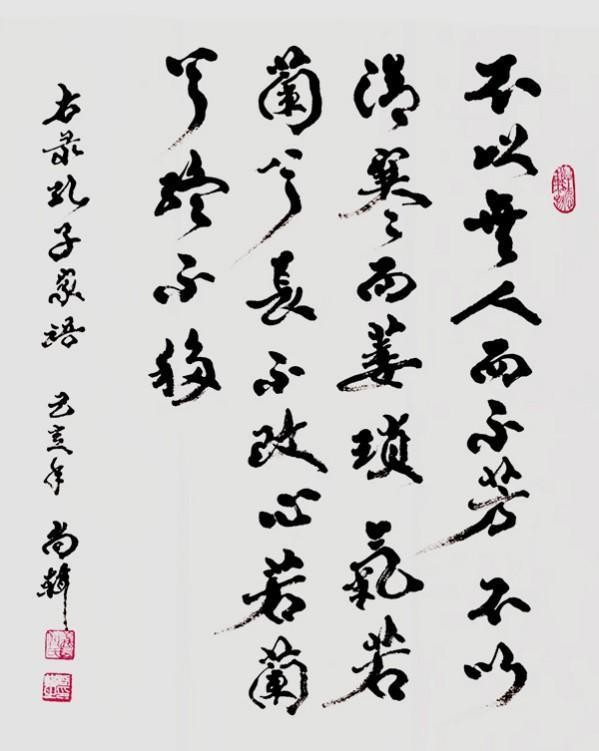 不以無人而不芳不以
清寒而萎瑣氣若
蘭兮長不改心若蘭
兮終不移
右录孔子家語 己亥年 尚